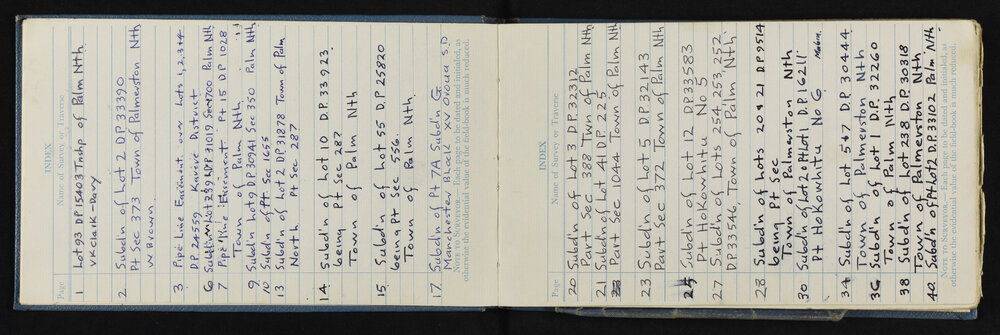 INDEX
Page Name of Survey or Traverse
1 Lot 93 DP 15403 Tnshp of Palm Nth
VK Clark - Davy
2 Subd'n of Lot 2 DP 33390
Pt Sec 373 Town of Palmerston Nth
W Brown
3 Pipe Line Easement over Lots 1, 2, 3 + 4
DP 24559 Kauwae District
6 Subd'n Lot 239 DP 31019 Sec 1700 Palm Nth
7 Pipe Line Easement Pt 15 DP 1028
Town of Palm Nth
9 Subd'n Lot 2 DP 30941 Sec 350 Palm Nth
10 Subd'n of Pt Sec 1655
13 Subd'n of Lot 2 DP 31878 Town of Palm
North Pt Sec 287
14 Subd'n of Lot 10 D.P. 33923
being Pt Sec 287
Town of Palm Nth
15 Subd'n of Lot 55 D.P. 25820
being Pt Sec 556
Town of Palm Nth
17 Subd'n of Pt 7A Subd'n G
Manchester Block IV Oroua S.D
NOTE to SURVEYOR.—Each page to be dated and initialed, as
otherwise the evidential value of the field-book is much reduced.
INDEX
Page Name of Survey or Traverse
20 Subd'n of Lot 3 DP. 32312
Part Sec 388 Town of Palm Nth
21 Subd'n of Lot 41 DP. 225
Part Sec 1044 Town of Palm Nth
23 Subd'n of Lot 5 DP. 32143
Part Sec 372 Town of Palm Nth
25 Subd'n of Lot 12 DP. 33583
Pt Hokowhitu No 5
27 Subd'n of Lots 254, 253, 252
DP 33546, Town of Palm Nth.
28 Subd'n of Lots 20 & 21 DP 9514
being Pt Sec
Town of Palmerston Nth
30 Subd'n of Lot 2 of Pt Lot 1 D.P. 16211
Pt Hokowhitu No G
34 Subd'n of Lot 5 & 7 D.P. 30444
Town of Palmerston Nth
36 Subd'n of Lot 1 DP. 32260
Town of Palm Nth
38 Subd'n of Lot 238 D.P. 30318
Town of Palmerston Nth
40 Subd'n of Pt Lot 2 D.P. 33102 Palm Nth
NOTE to SURVEYOR.—Each page to be dated and initialed, as
otherwise the evidential value of the field-book is much reduced.